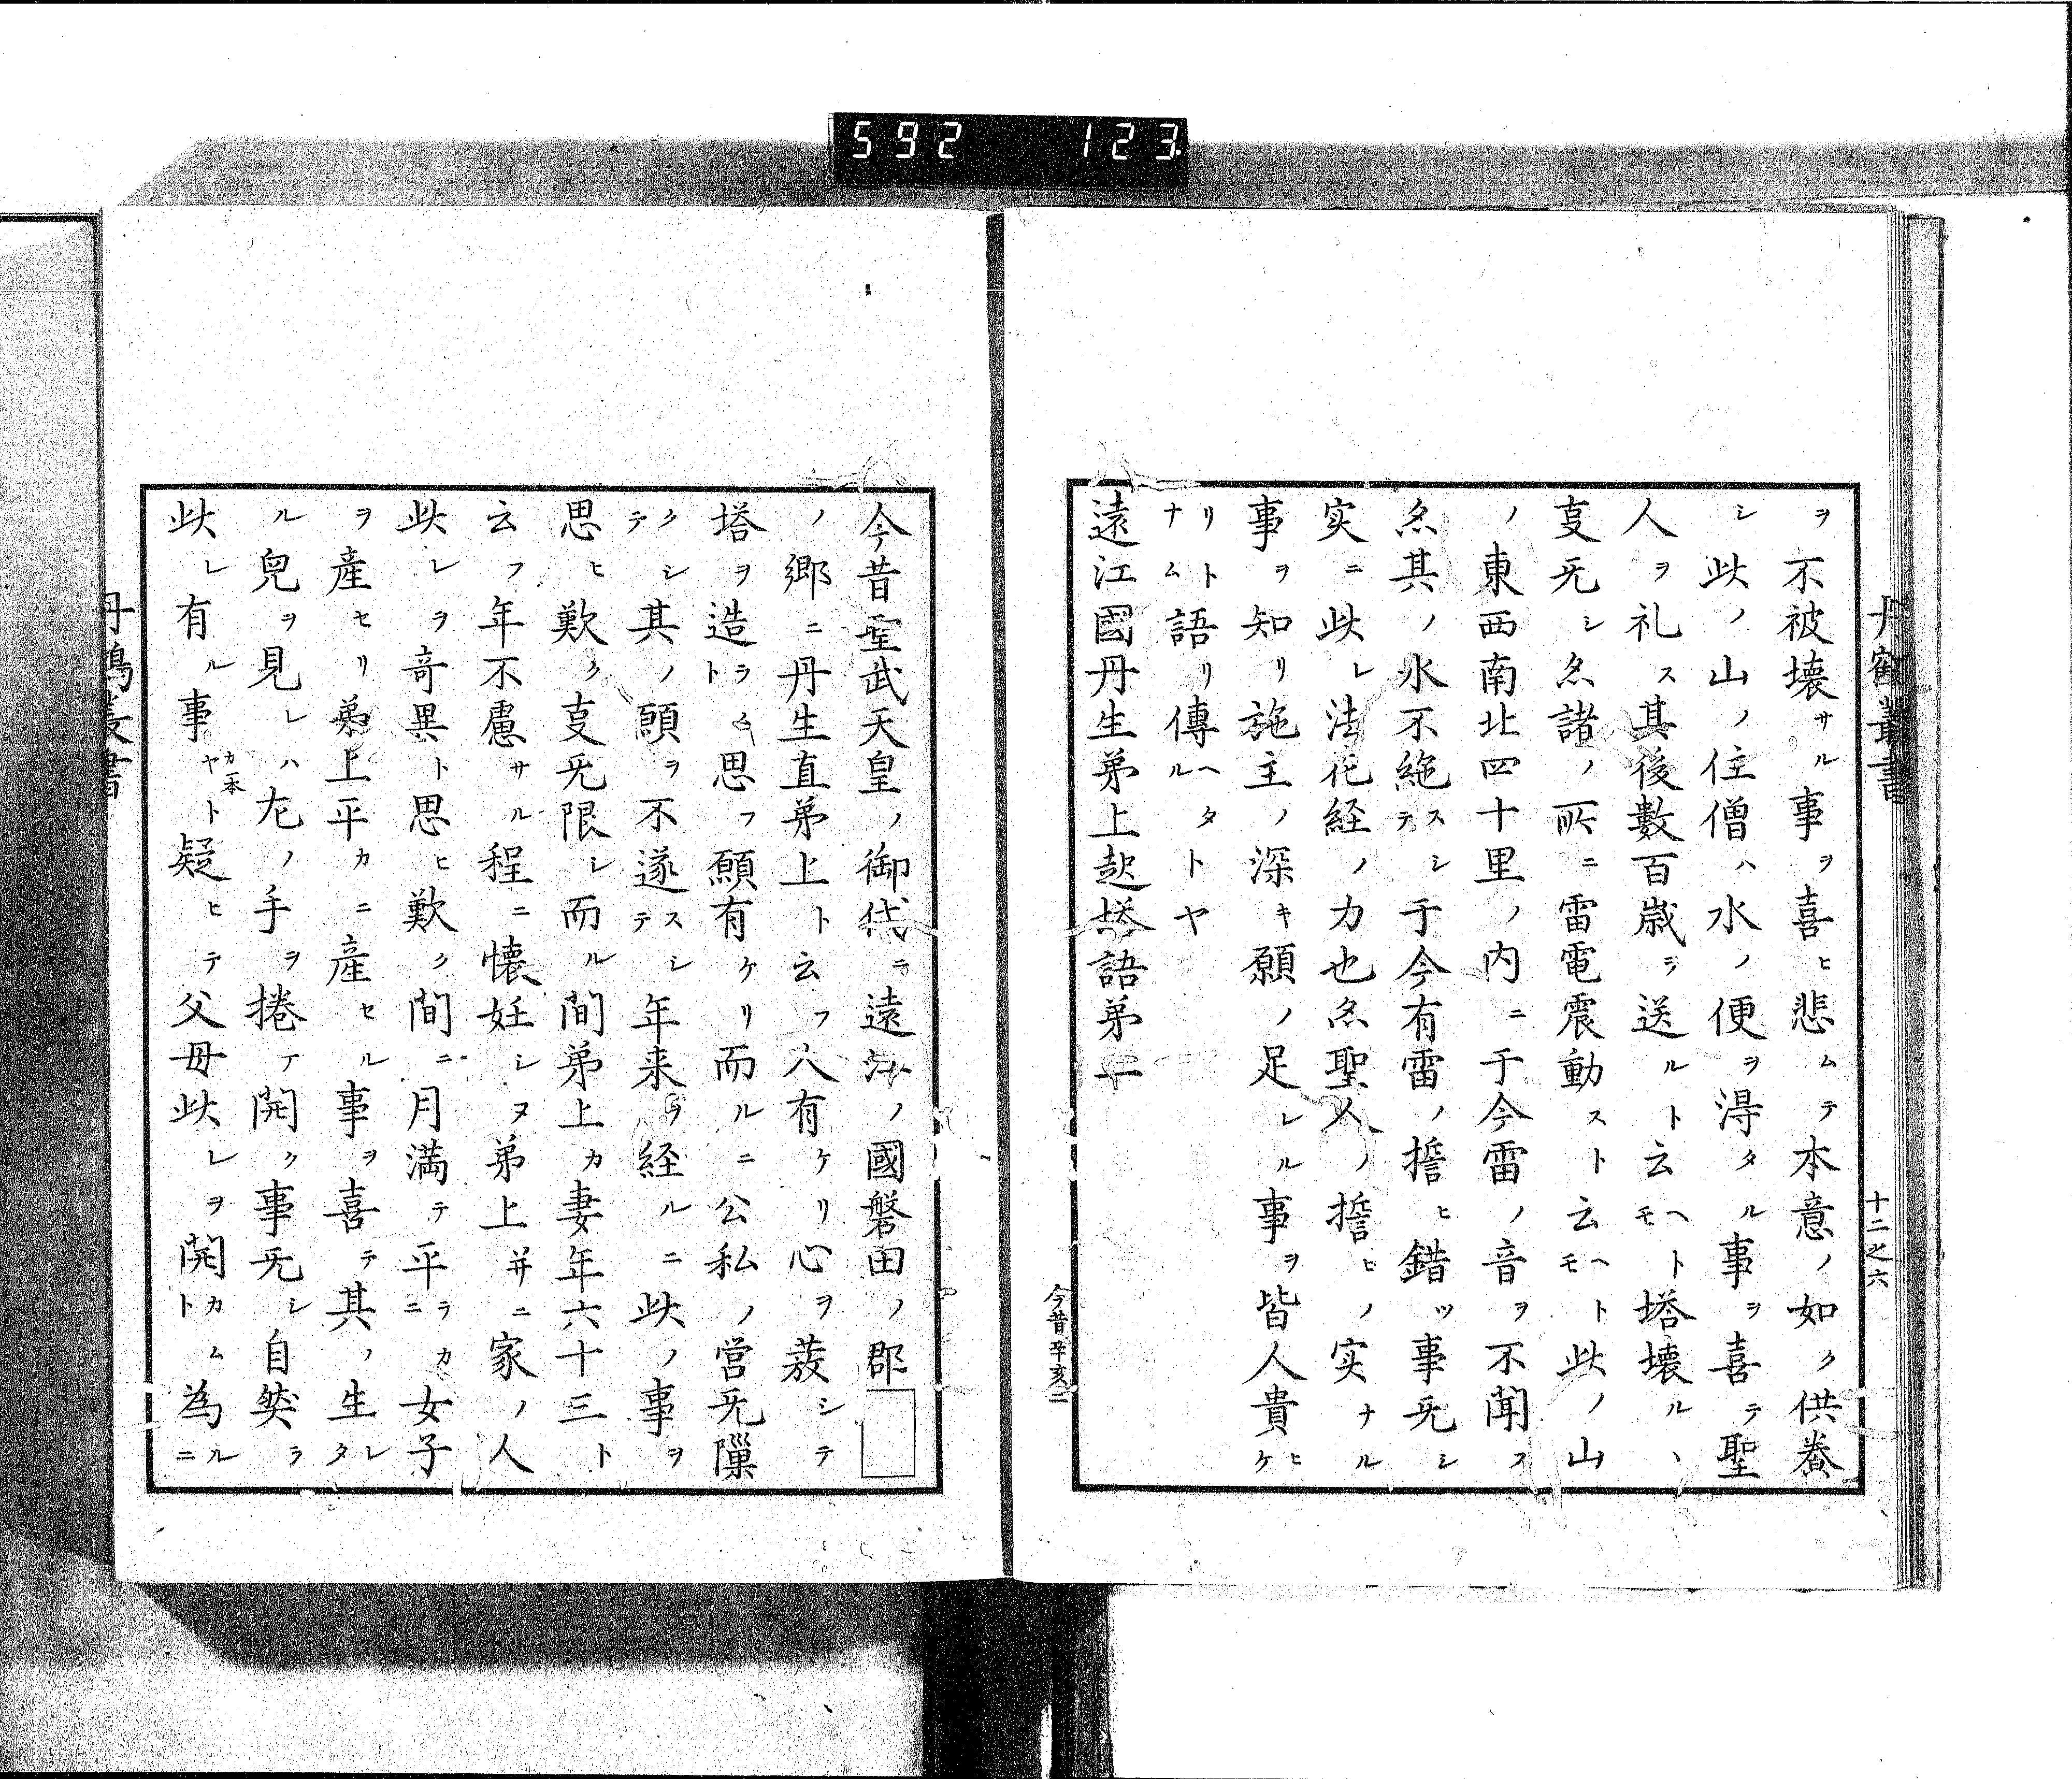 592 123
丹鶴叢書
十二之六
ヲ不被壊サル事ヲ喜ヒ悲ムテ本意ノ如ク供養
シ此ノ山ノ住僧ハ水ノ便ヲ得タル事ヲ喜テ聖
人ヲ礼ス其後數百歳ヲ送ルト云ヘトモ塔壊ルヽ
叓旡シ亦諸ノ所ニ雷電震動スト云ヘトモ此ノ山
ノ東西南北四十里ノ内ニ于今雷ノ音ヲ不聞ス
亦其ノ水不絶スシテ于今有雷ノ擔ヒ錯ツ事旡シ
実ニ此レ法花経ノ力也亦聖人ノ擔ヒノ実ナル
事ヲ知リ施主ノ深キ願ノ足レル事ヲ皆人貴ヒケ
リトナム語リ傳ヘタルトヤ
遠江國丹生弟上起塔語弟二
今昔辛亥二
今昔聖武天皇ノ御代ニ遠江ノ國磐田ノ郡□
ノ郷ニ丹生直弟上ト云フ人有ケリ心ヲ發シテ
塔ヲ造ラムト思フ願有ケリ而ルニ公私ノ営旡隟
クシテ其ノ願ヲ不遂スシテ年来ヲ経ルニ此ノ事ヲ
思ヒ歎ク叓旡限シ而ル間弟上カ妻年六十三ト
云フ年不慮サル程ニ懐妊シヌ弟上并ニ家ノ人
此レヲ奇異ト思ヒ歎ク間ニ月満テ平ラカニ女子
ヲ産セリ弟上平カニ産セル事ヲ喜テ其ノ生レタ
ル皃ヲ見レハ左ノ手ヲ捲テ開ク事旡シ自然ラ
此レ有ル事ヤカ一本ト疑ヒテ父母此レヲ開カムト為ルニ
丹鶴叢書